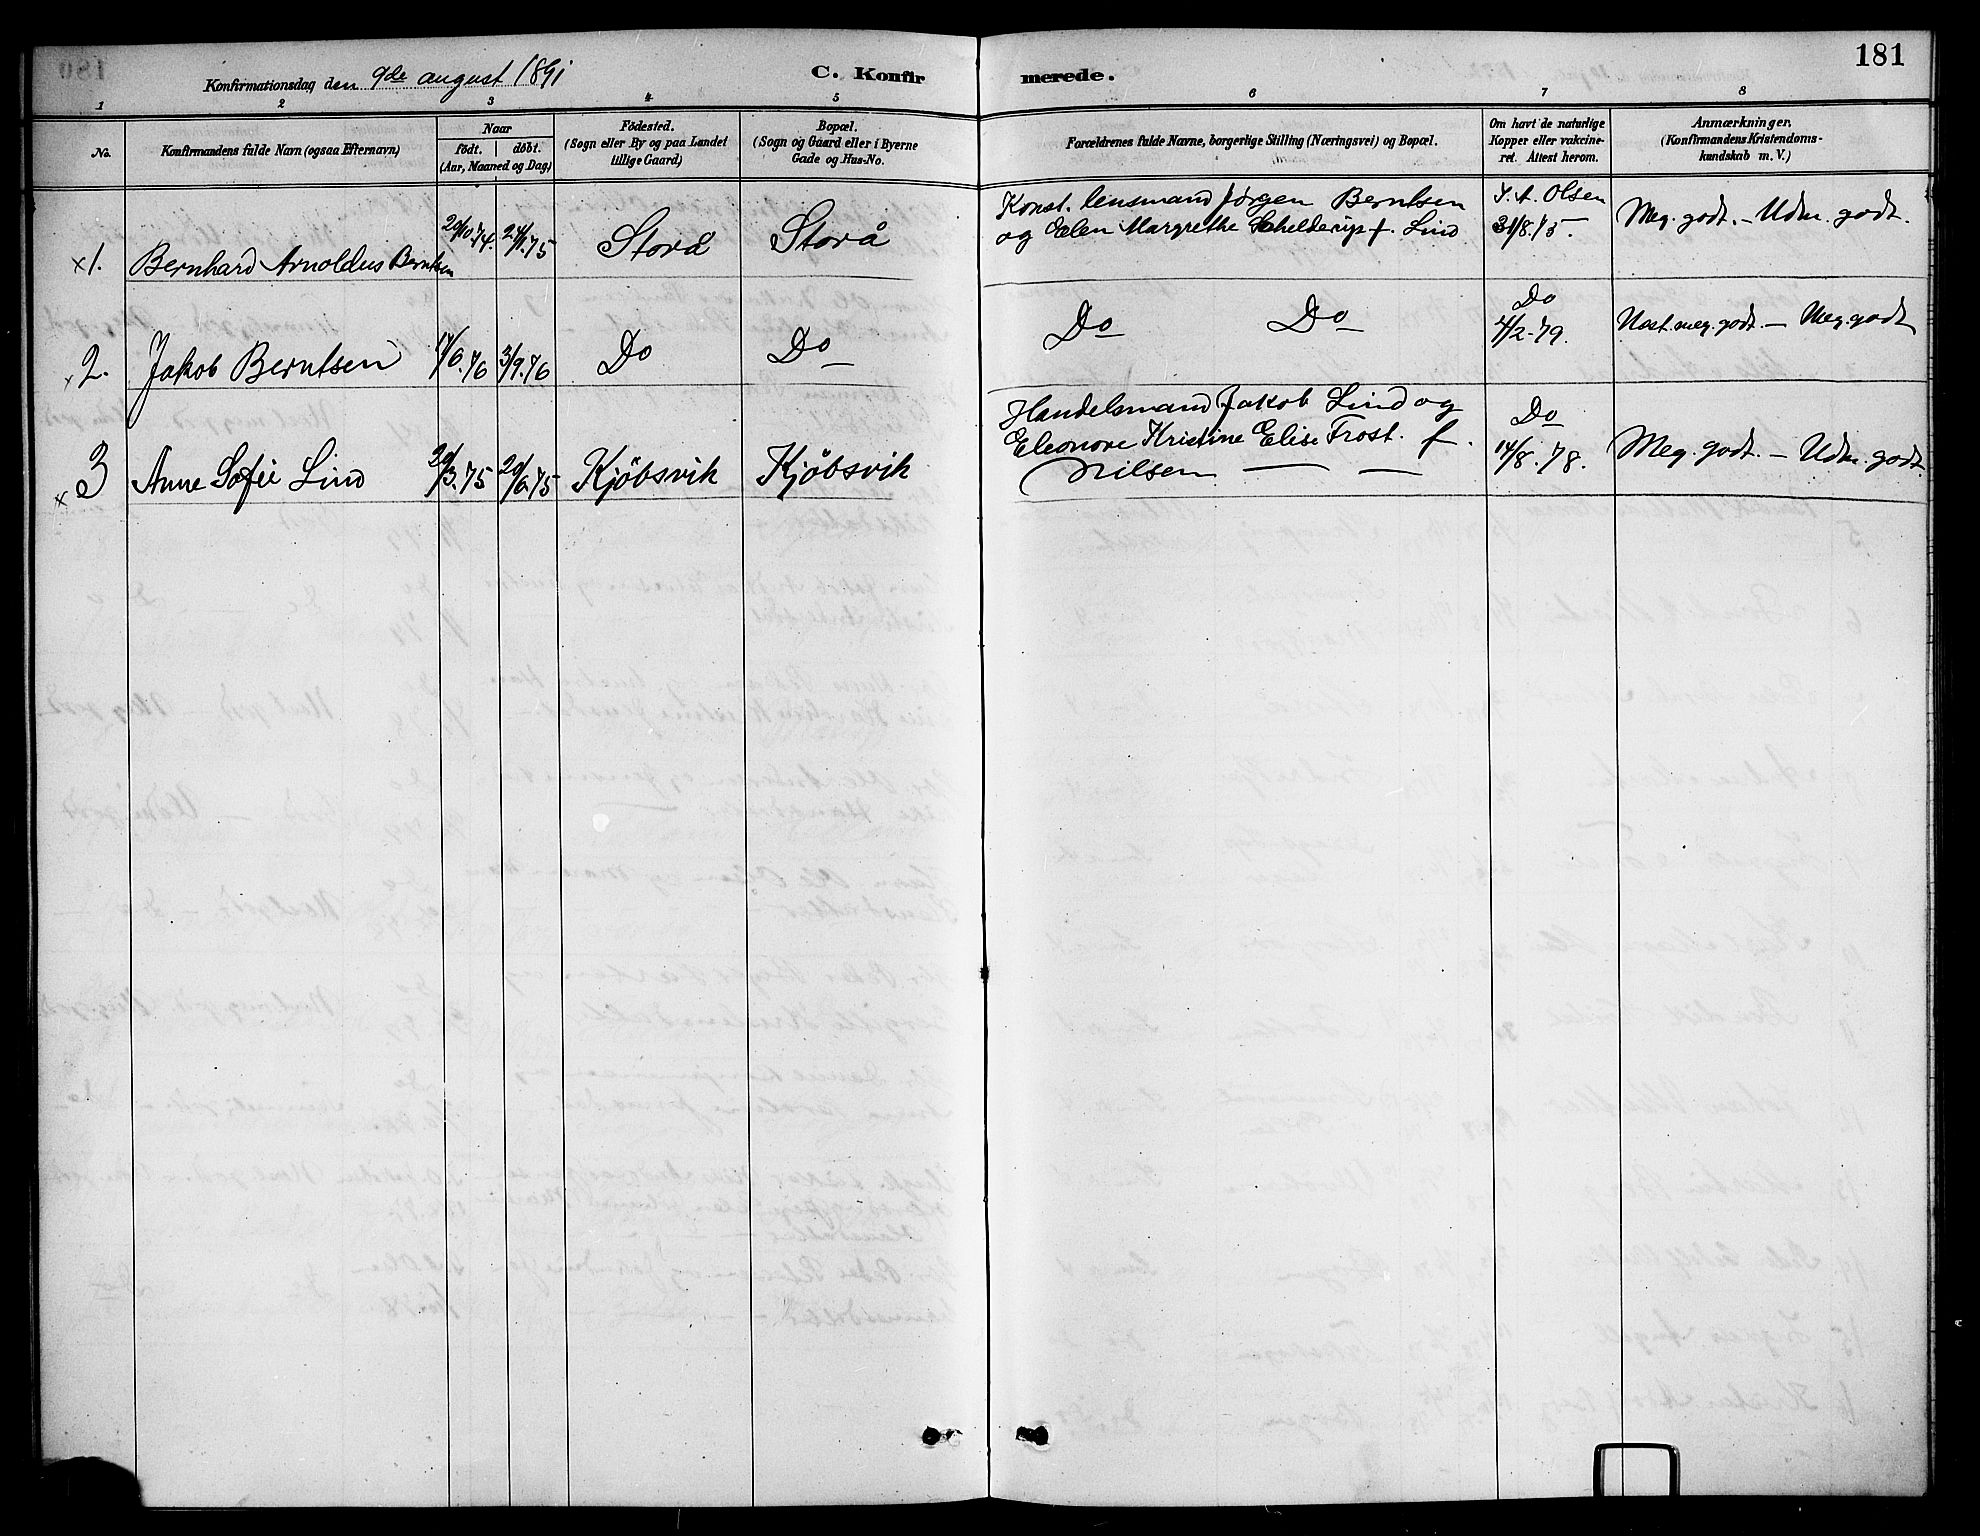 181
Konfirmationsdag den 9de august 1891
C. Konfirmerede.
1 2 3 4 5 6 7 8
No.
Konfirmandens fulde Navn (ogsaa Efternavn)
Naar
født. døbt.
(Aar, Maaned og Dag)
Födested.
(Sogn eller By og paa Landet
tillige Gaard)
Bopæl.
(Sogn og Gaard eller i Byerne
Gade og Hus-No.
Forældrenes fulde Navne, borgerlige Stilling (Næringsvei) og Bopæl.
Om havt de naturlige
Kopper eller vakcine-
ret. Attest herom.
Anmærkninger.
(Konfirmandens Kristendoms-
kundskab m. V.)
x 1. Bernhard Arnoldus Berntsen 29/10.74. 24/1.75 Storå Storå
Konst. lensmand Jørgen Berntsen
og Elen Margrethe Schelderup f. Lind
S. A. Olsen
31/8.75.
Meg. godt. - Udm. godt.
x 2. Jakob Berntsen 3/9.76 Do Do
Do Do
Do
4/2.79.
Nost. meg. godt. - Meg. godt
x 3 Anne Sofie Lind 29/3.75 29/6.75 Kjöbsvik Kjöbsvik
Handelsmand Jakob Lind og
Eleonore Kristine Elise Frost. f.
Nilsen
Do
14/8.78.
Meg. godt. - Udm. godt.